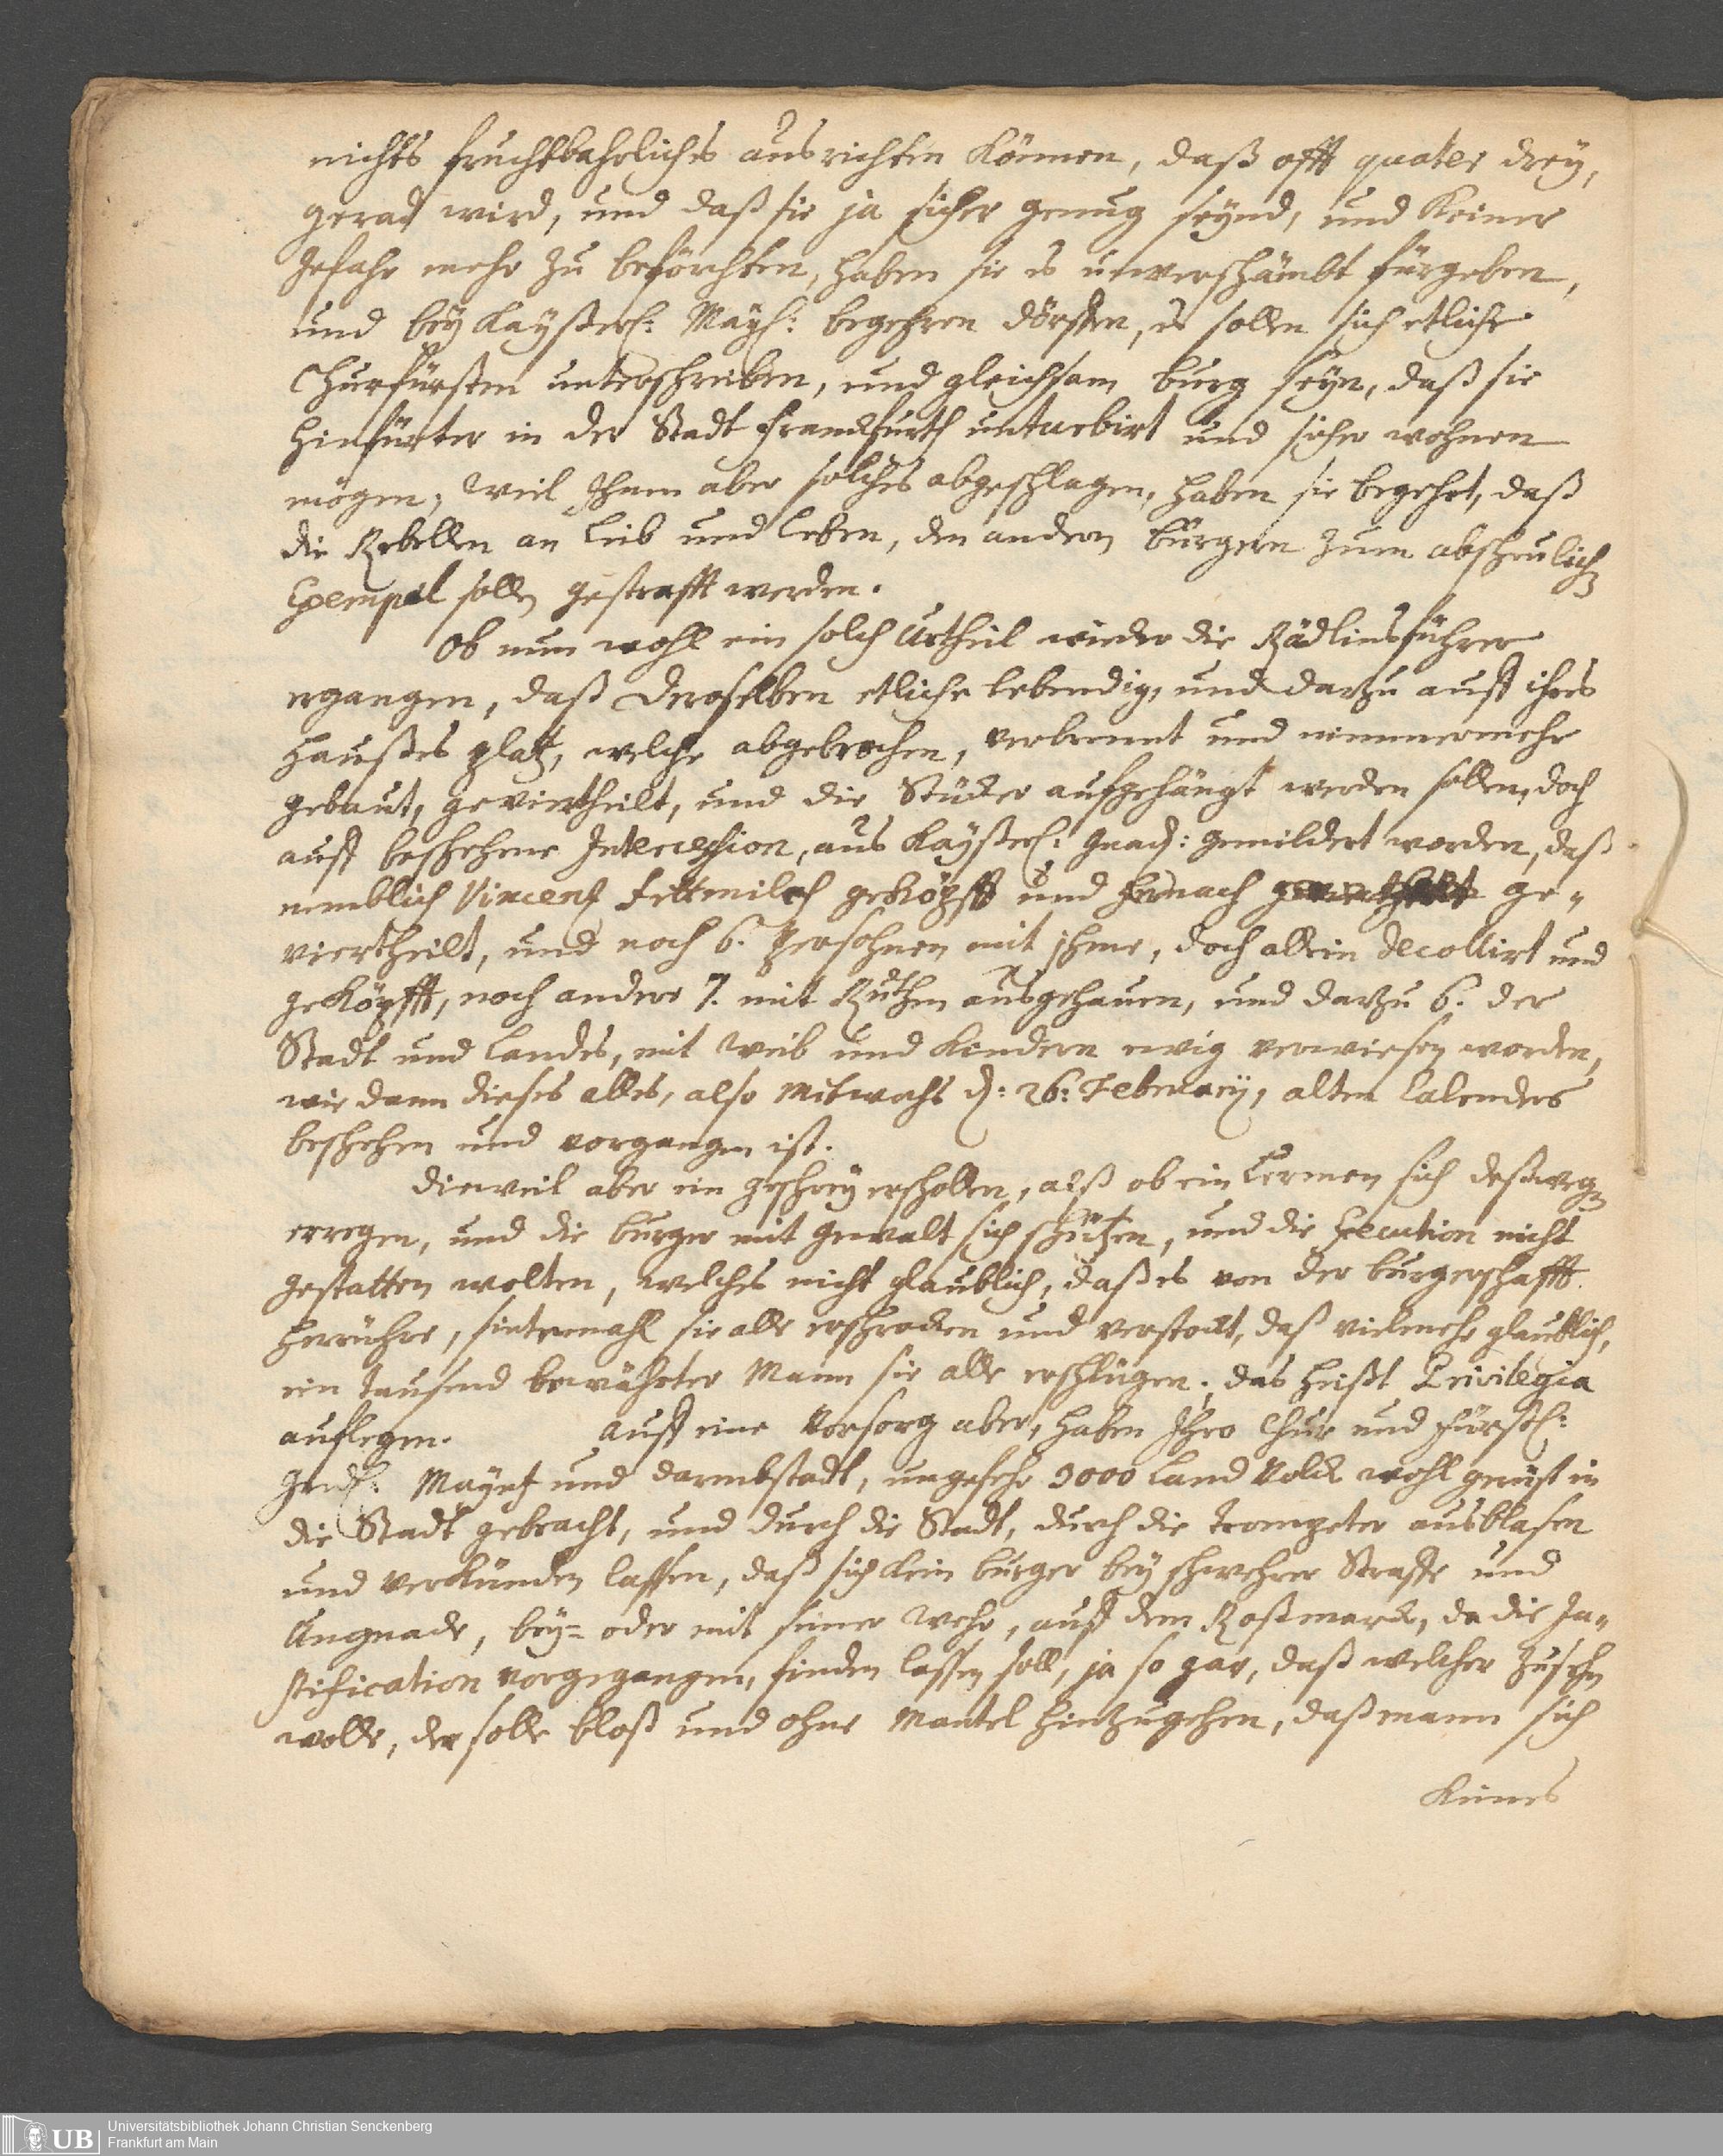 nichts fruchtbahrliches ausrichten können, daß offt quater drey,
gerad wird, und daß sie ja sicher genug seynd, und keiner
gefahr mehr zu beförchten, haben sie es unverschämbt fürgeben,
und bey Kayßerl: Mayst: begehren dörffen, es sollen sich etliche
Churfürsten unterschreiben, und gleichsam burg seyn, daß sie
hinfürter in der Stadt Franckfurth unturbirt und sicher wohnen
mögen; Weil Ihnen aber solches abgeschlagen, haben sie begehrt, daß
die Rebellen an Leib und Leben, den andern bürgern zum abscheulichen
Exempel sollen gestrafft werden.
Ob nun wohl ein solch Urtheil wieder die Rädlinsführer
ergangen, daß deroselben etliche lebendig, und darzu auff ihres
Haußes platz, welche abgebrochen, verbrennt und nimmermehr
gebaut, geviertheilt, und die Stücker aufgehängt werden sollen, doch
auff beschehene Intercession, aus Kayßerl: gnad: gemildert worden, daß
nemblich Vincenz Fettmilch geköpfft und hernach geviertheilt ge-
viertheilt, und noch 6. Persohnen mit ihme, doch allein decollirt und
geköpfft, noch andere 7. mit Ruthen ausgehauen, und darzu 6. der
Stadt und Landes, mit Weib und Kindern ewig verwiesen worden,
wie dann dieses alles, also Mitwochs d: 26: February, alten Calenders
beschehen und vorgangen ist.
Dieweil aber ein geschrey erschollen, alß ob ein Lermen sich deßwegen
erregen, und die burger mit gewalt sich schützen, und die Execution nicht
gestatten wolten, welches nicht glaublich, daß es von der burgerschafft
herrühre, sintemahl sie alle erschrocken und verstockt, daß vielmehr glaublich,
ein tausend bewährter Mann sie alle erschlügen; das heißt Privilegia
auflegen. Auff eine Vorsorg aber, haben Ihro Chur und Fürstl:
Gndl: Mayntz und Darmbstadt, ungefehr 3000 Land Volck wohl gerüst in
die Stadt gebracht, und durch die Stadt, durch die Trompeter ausblasen
und verkünden lassen, daß sich kein burger bey schwehrer Straffe und
Ungnade, bey= oder mit seiner Wehr, auff dem Roßmarck, da die Ju-
stification vorgegangen, finden lassen soll, ja so gar, daß welcher zusehen
wolle, der solle bloß und ohne Mantel hinzugehen, daß mann sich
Keines
UB
Universitätsbibliothek Johann Christian Senckenberg
Frankfurt am Main